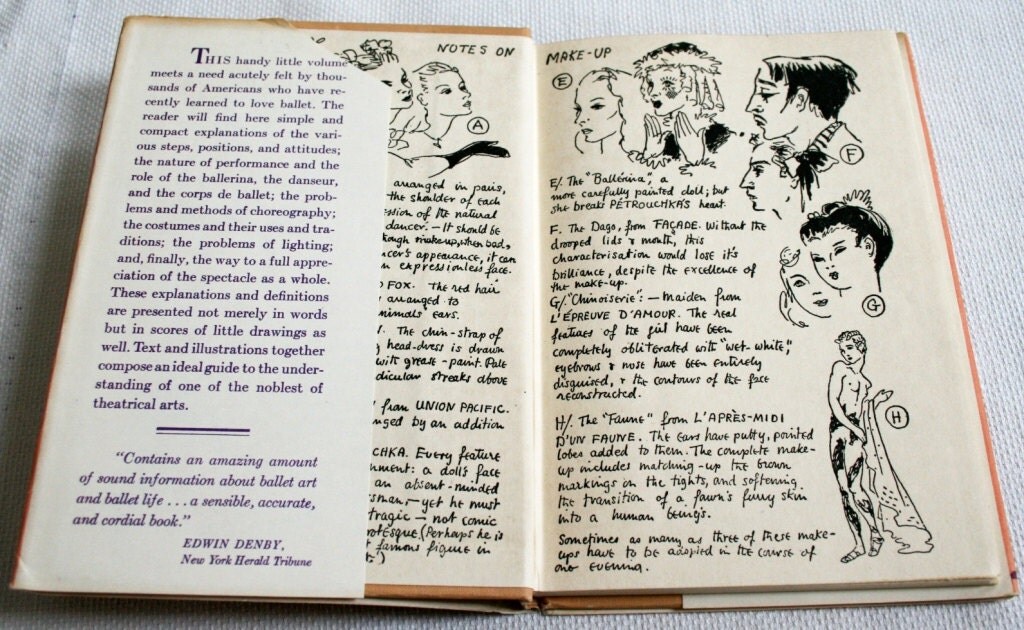 THIS handy little volume
meets a need acutely felt by thou-
sands of Americans who have re-
cently learned to love ballet. The
reader will find here simple and
compact explanations of the vari-
ous steps, positions, and attitudes;
the nature of performance and the
role of the ballerina, the danseur,
and the corps de ballet; the prob-
lems and methods of choreography;
the costumes and their uses and tra-
ditions; the problems of lighting;
and, finally, the way to a full appre-
ciation of the spectacle as a whole.
These explanations and definitions
are presented not merely in words
but in scores of little drawings as
well. Text and illustrations together
compose an ideal guide to the under-
standing of one of the noblest of
theatrical arts.
"Contains an amazing amount
of sound information about ballet art
and ballet life . . . a sensible, accurate,
and cordial book."
EDWIN DENBY,
New York Herald Tribune
NOTES ON
A
arranged in pairs,
the shoulder of each
ssion of the natural
dancer. — It should be
hough make-up, when bad,
ncer's appearance, it can
n expressionless face.
FOX. The red hair
arranged to
nimals' ears.
. The chin-strap of
head-dress is drawn
with grease-paint. Pale
dicular streaks above
from UNION PACIFIC.
nged by an addition
CHKA. Every feature
nment: a doll's face
an absent-minded
sman, — yet he must
tragic — not comic
rotesque. (Perhaps he is
t famous figure in
t.')
MAKE-UP
E
F
G
H
E/. The "Ballerina", a
more carefully painted doll; but
she breaks PÉTROUCHKA'S heart.
F. The Dago, from FAÇADE. Without the
drooped lids & mouth, this
characterisation would lose it's
brilliance, despite the excellence of
the make-up.
G/. "Chinoiserie": — Maiden from
L'ÉPREUVE D'AMOUR. The real
features of the girl have been
completely obliterated with "wet-white",
eyebrows & nose have been entirely
disguised, & the contours of the face
reconstructed.
H/. The "Faune" from L'APRÈS-MIDI
D'UN FAUNE. The ears have putty, pointed
lobes added to them. The complete make-
up includes matching-up the brown
markings on the tights, and softening
the transition of a fawn's furry skin
into a human being's.
Sometimes as many as three of these make-
ups have to be adopted in the course of
one evening.